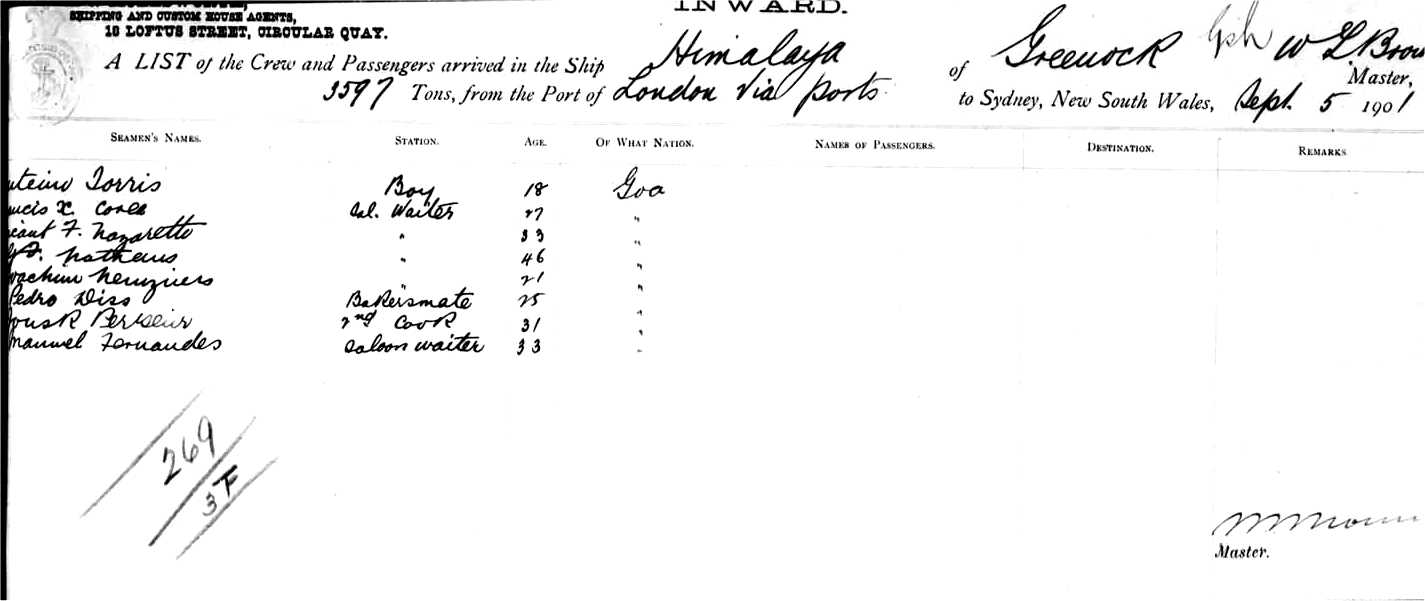 INWARD.
SHIPPING AND CUSTOM HOUSE AGENTS,
18 LOFTUS STREET, CIRCULAR QUAY.
A LIST of the Crew and Passengers arrived in the Ship Himalaya of Greenock W L Brow Master,
3597 Tons, from the Port of London via ports to Sydney, New South Wales, Sept. 5 1901
SEAMEN'S NAMES. STATION. AGE. OF WHAT NATION. NAMES OF PASSENGERS. DESTINATION. REMARKS
Torris Boy 18 Goa
ucis X. Sal. Waiter 27 "
F. Nazaretto " 33 "
Matheus " 46 "
oachim " 21 "
Pedro Diss Bakersmate 25 "
2nd Cook 31 "
Manuel Fernandes Saloon waiter 33 "
269
3F
Master.